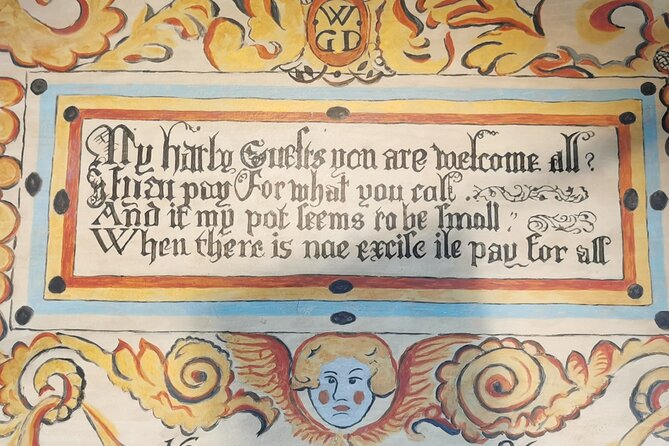 W
G D
My Gueſts you are welcome all?
pay For what you call ..
And if my pot ſeems to be ſmall
When there is nae exciſe ile pay for all
16